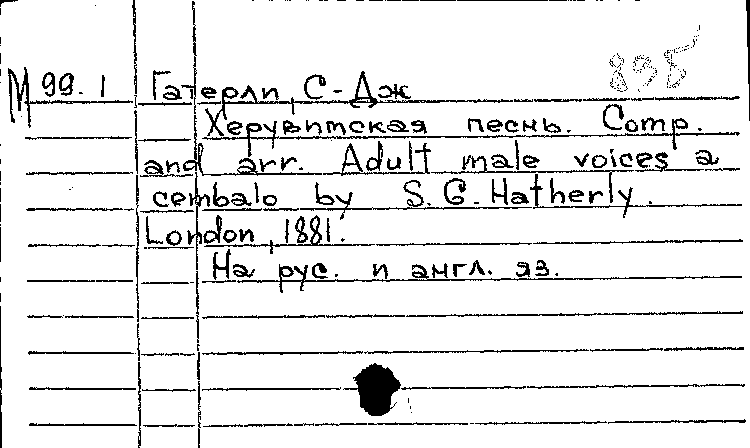 895
М 99.1 Гатерли, С-Дж
Херувимская песнь. Comp.
and arr. Adult male voices a
cembalo by S. G. Hatherly.
London, 1881.
На рус. и англ. яз.